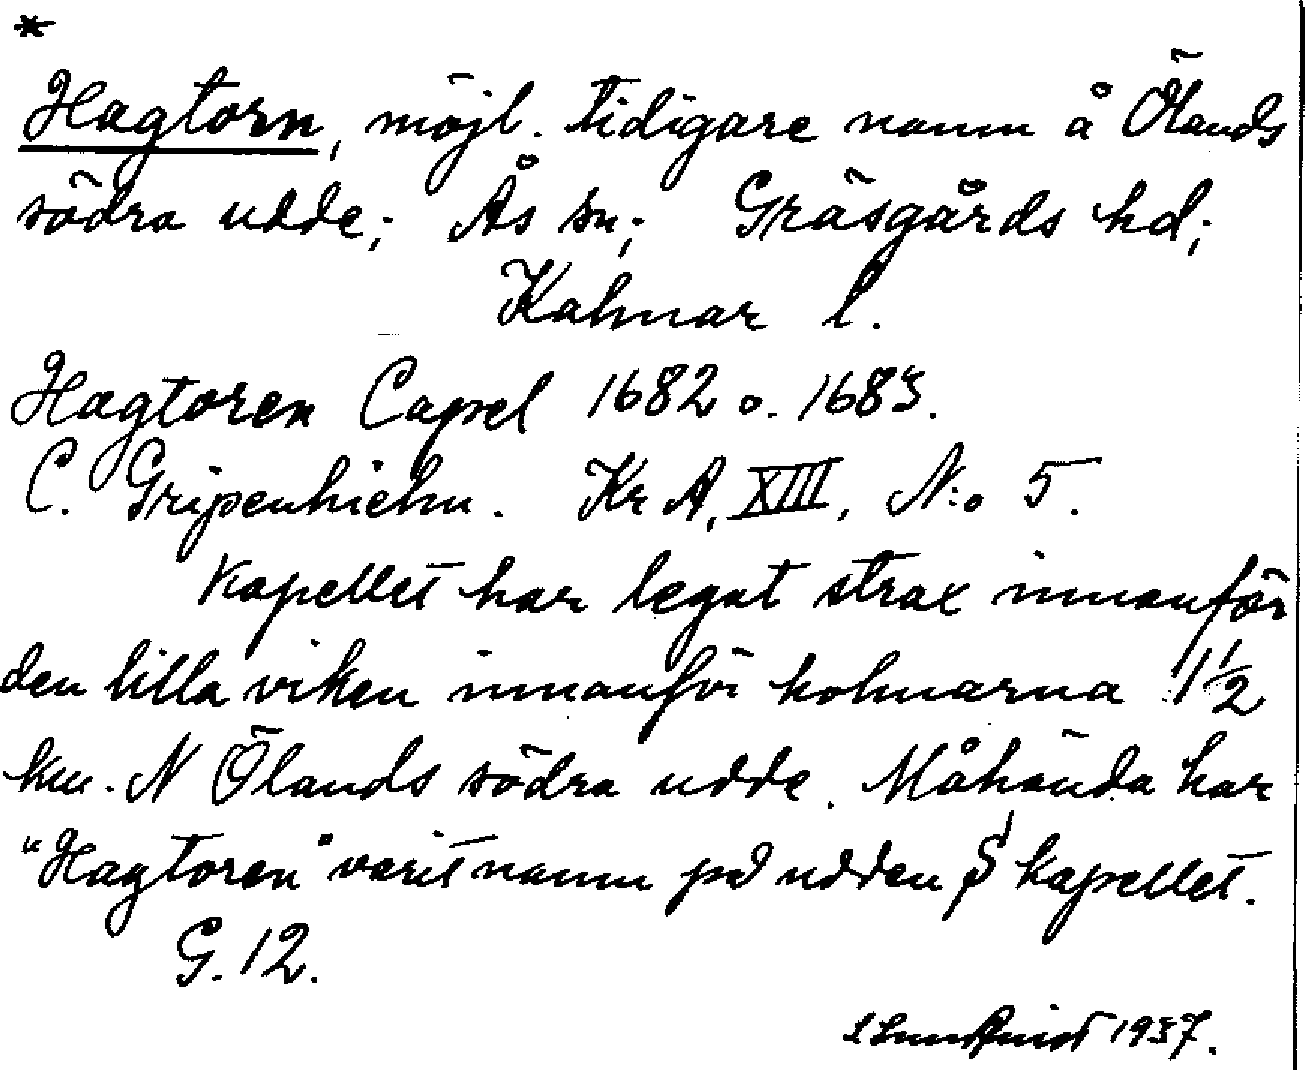 *
Hagtorn, möjl. tidigare namn å Ölands
södra udde; Ås sn; Gräsgårds hd;
Kalmar l.
Hagtoren Capel 1682 o. 1683.
C. Gripenhielm. Kr A, XIII, N:o 5.
Kapellet har legat strax innanför
den lilla viken innanför holmarna 1 1/2
km. N Ölands södra udde. Måhända har
"Hagtoren" varit namn på udden S kapellet.
G. 12.
Lundquist 1937.